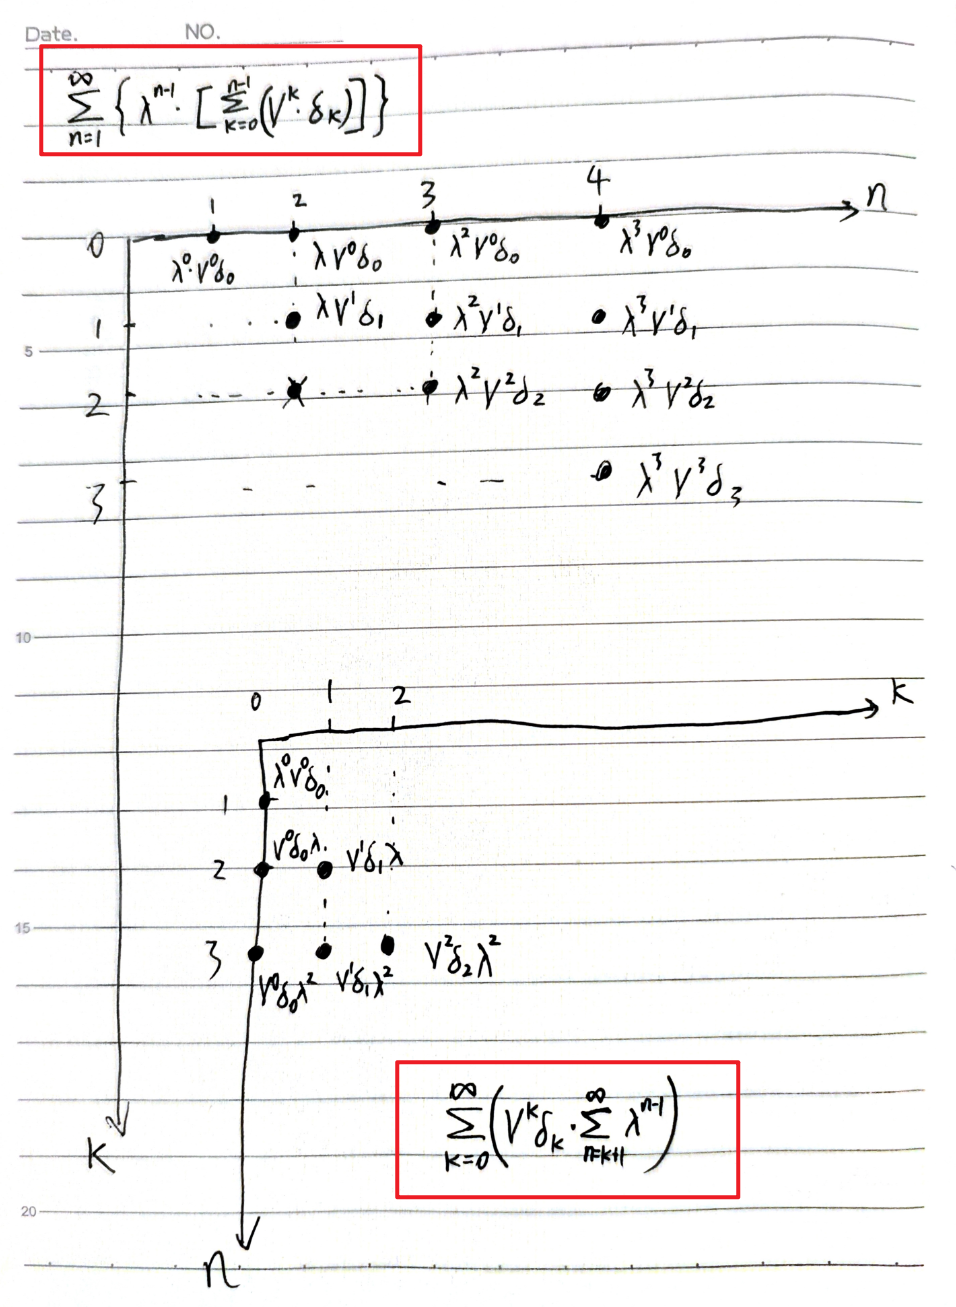 Date. NO.
\sum_{n=1}^{\infty} \{ λ^{n-1} · [ \sum_{k=0}^{n-1} (γ^k · δ_k) ] \}
1 2 3 4 n
0
λ^0·γ^0δ_0 λγ^0δ_0 λ^2γ^0δ_0 λ^3γ^0δ_0
1 λγ^1δ_1 λ^2γ^1δ_1 λ^3γ^1δ_1
5
2 λ^2γ^2δ_2 λ^3γ^2δ_2
3 λ^3γ^3δ_3
10
0 1 2 k
λ^0γ^0δ_0
1
γ^0δ_0λ
2 γ^1δ_1λ
15
3 γ^2δ_2λ^2
γ^0δ_0λ^2 γ^1δ_1λ^2
\sum_{k=0}^{\infty} ( γ^kδ_k · \sum_{n=k+1}^{\infty} λ^{n-1} )
k
20
n